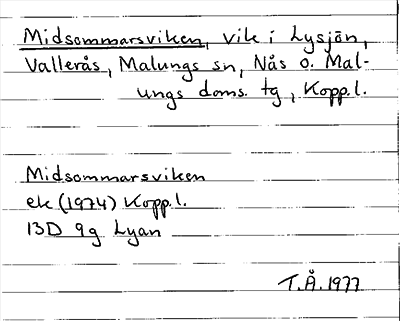 Midsommarsviken, vik i Lysjön,
Vallerås, Malungs sn, Nås o. Mal-
ungs doms. tg, Kopp.l.
Midsommarsviken
ek (1974) Kopp.l.
13D 9g Lyan
T.Å. 1977